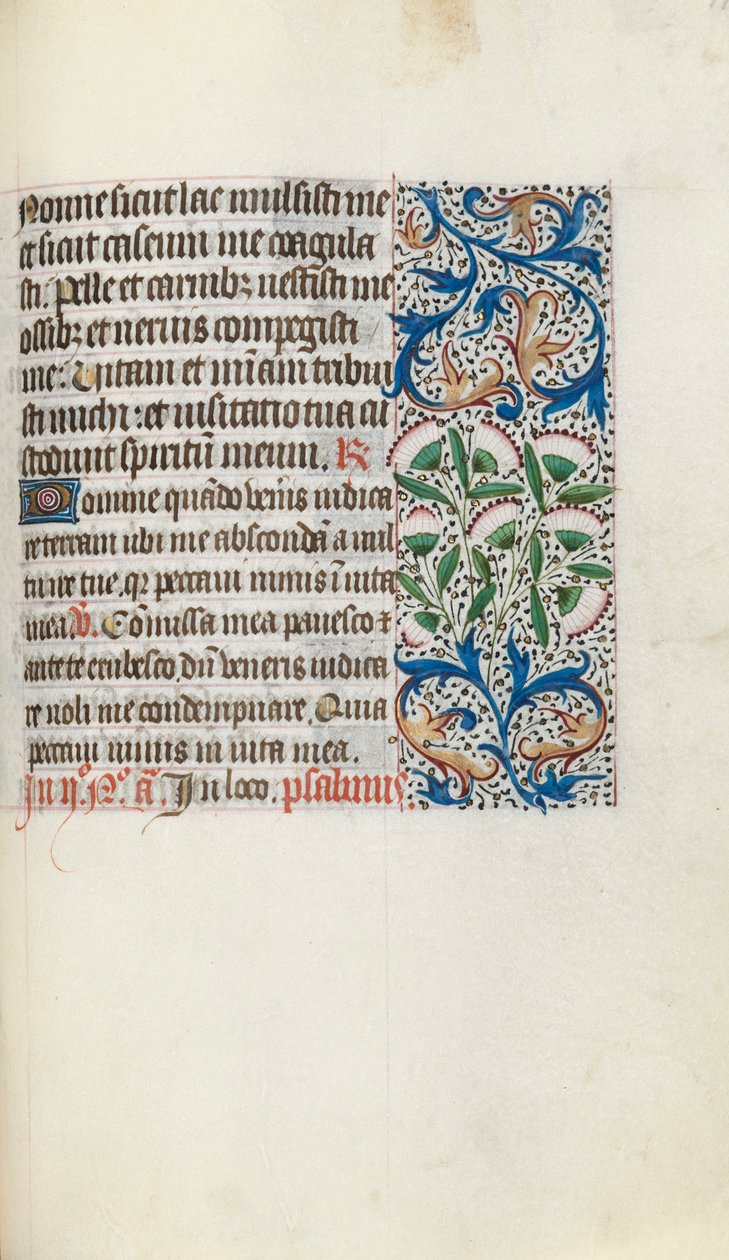 Nonne sicut lac mulsisti me
et sicut caseum me coagula
sti. Pelle et carnibꝫ uestisti me
ossibꝫ et neruis compegisti
me: Uitam et mĩam tribui
sti michi : et uisitatio tua cu
stodiuit spiritũ meum. R
Domine quãdo veneris iudica
re terram ubi me abscondã a uul
tu ire tue. qꝛ peccaui nimis ĩ uita
mea. V. Cõmissa mea pauesco ⁊
ante te erubesco. dũ veneris iudica
re noli me condempnare. Quia
peccaui nimis in uita mea.
In ijº. Nº. ã. In loco. psalmus.